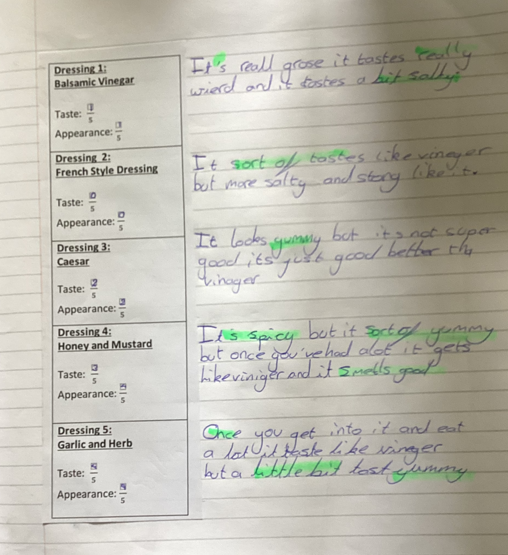 Dressing 1:
Balsamic Vinegar
Taste: /5
Appearance: /5
It's reall grose it tastes really
wierd and it tastes a bit salty.
Dressing 2:
French Style Dressing
Taste: /5
Appearance: /5
It sort of tastes like vineger
but more salty and stong like
Dressing 3:
Caesar
Taste: /5
Appearance: /5
It looks yummy but it's not super
good it's just good better
vinager
Dressing 4:
Honey and Mustard
Taste: /5
Appearance: /5
It's spicy but it sort of yummy
but once you've had alot it gets
like viniger and it smells good
Dressing 5:
Garlic and Herb
Taste: /5
Appearance: /5
Once you get into it and eat
a lot it taste like vineger
but a little bit tast yummy